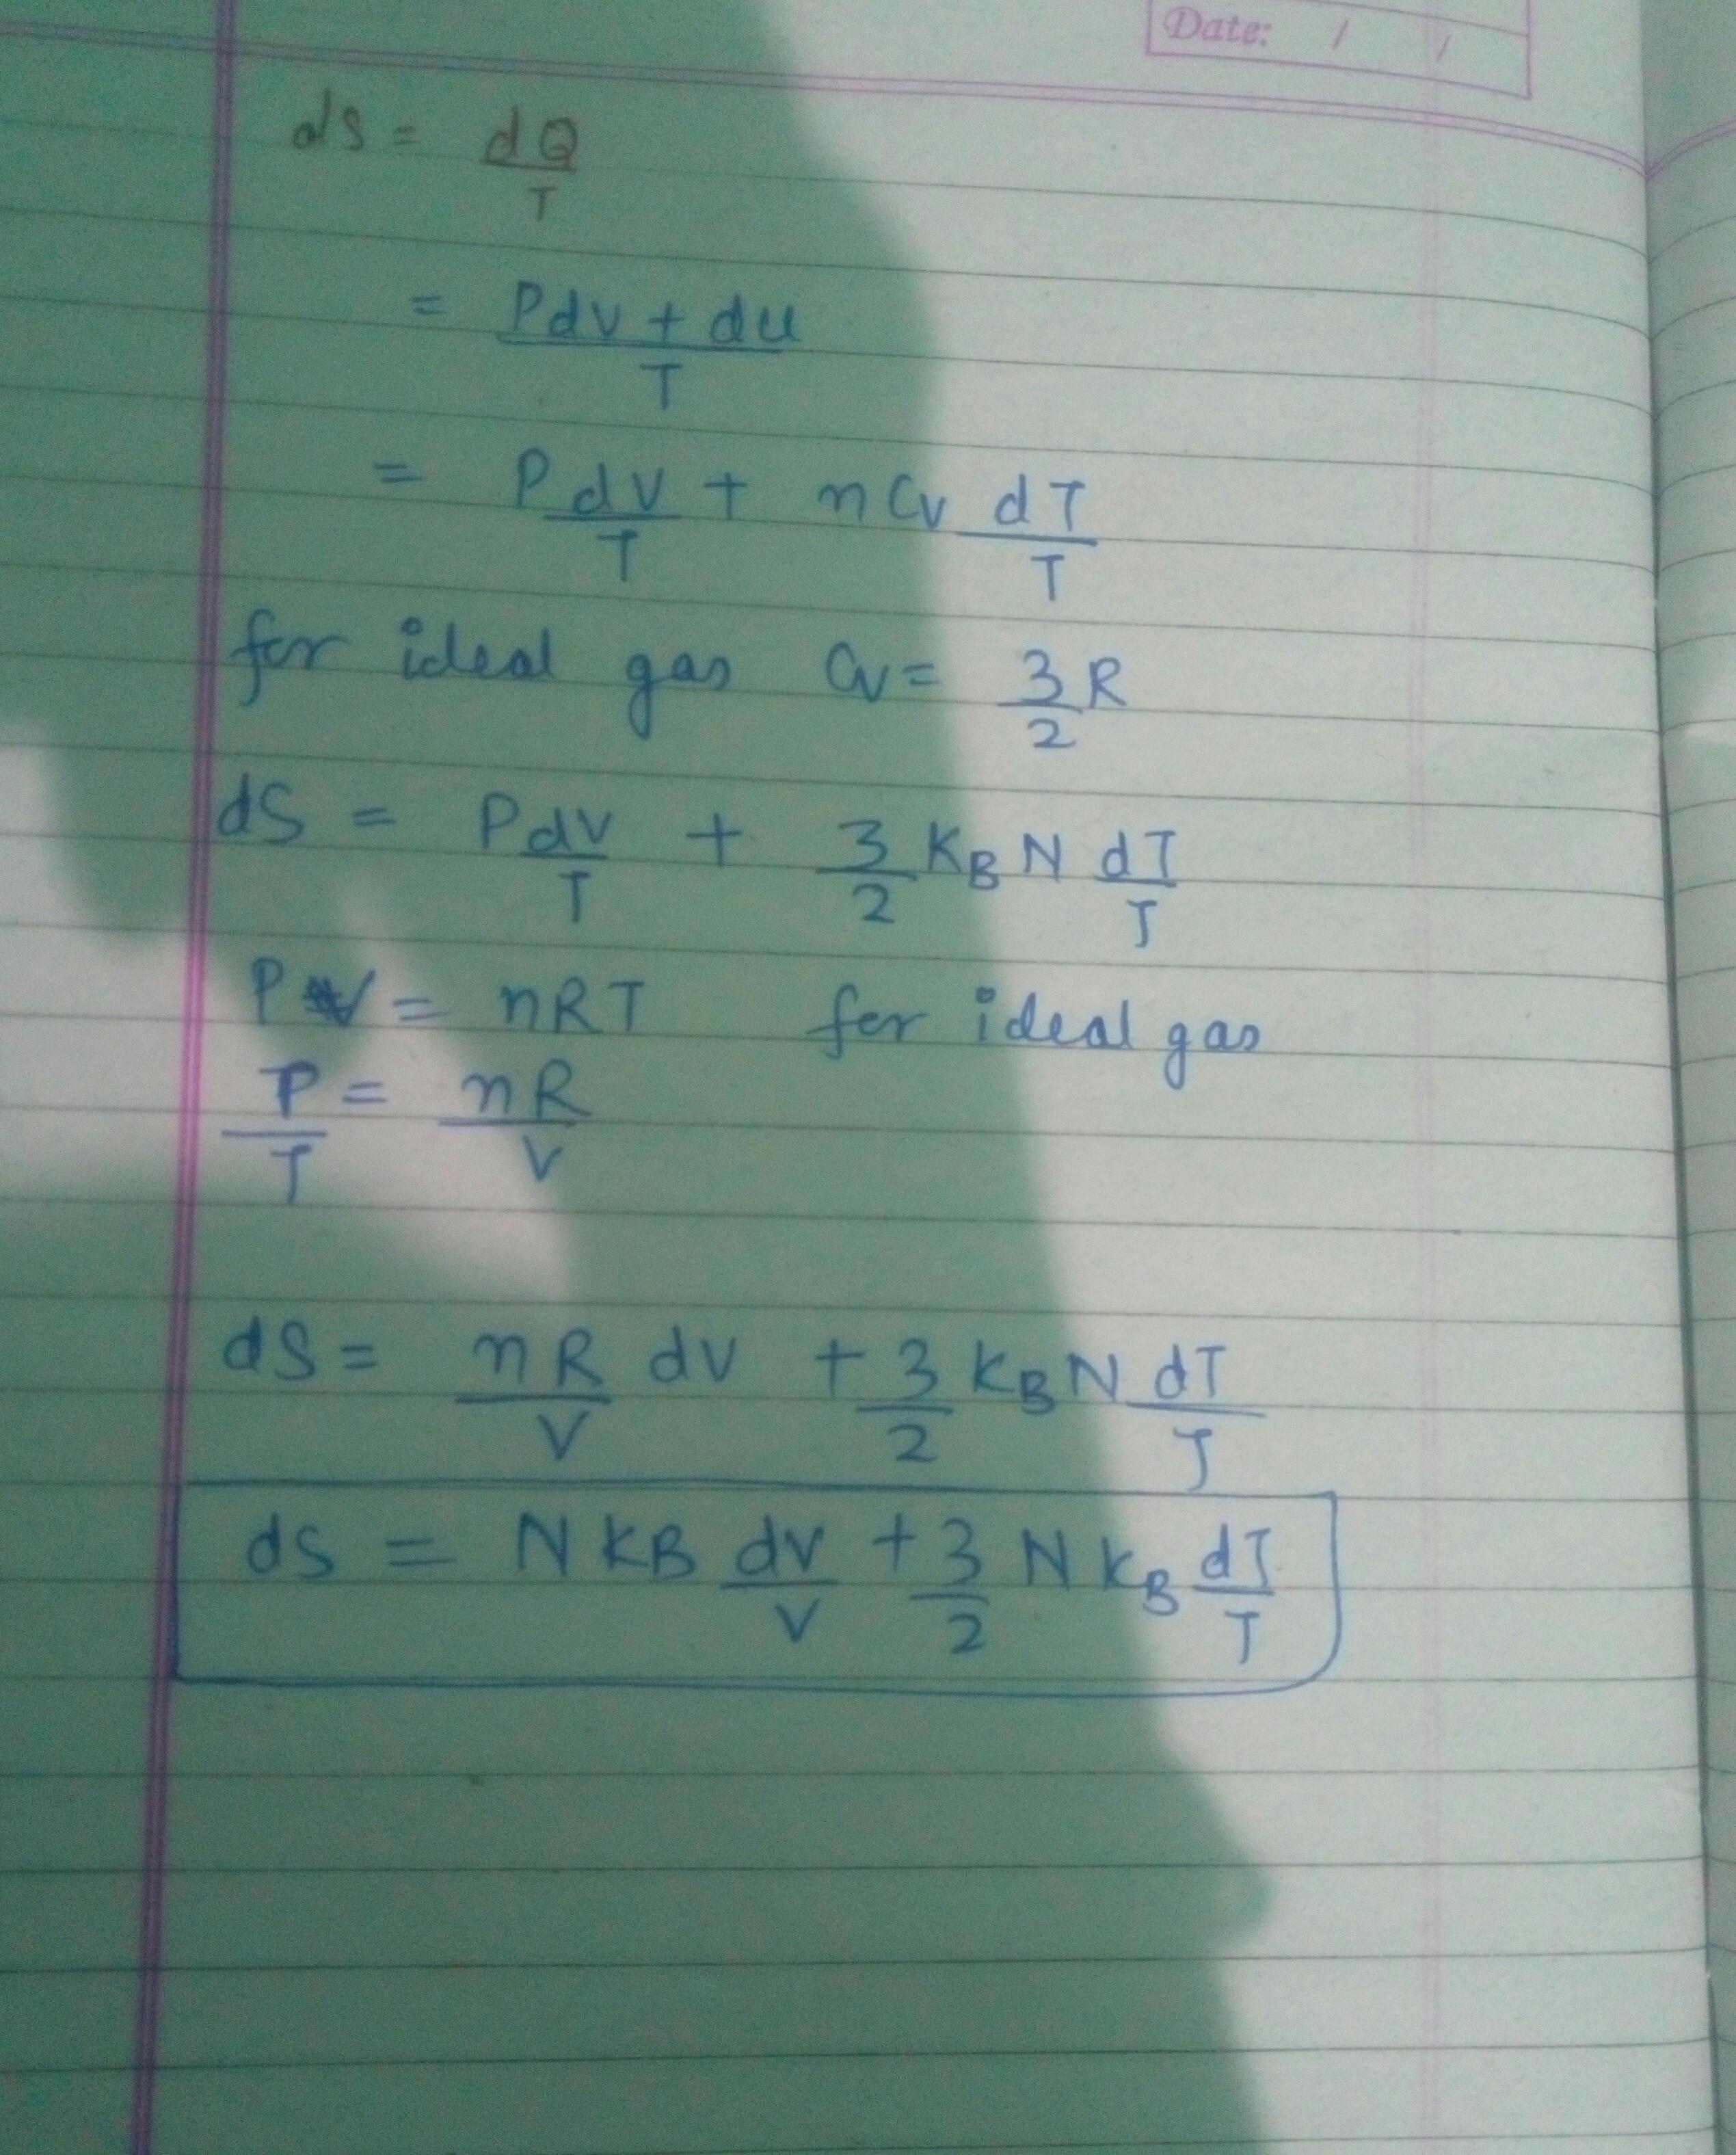 Date: / /
dS = dQ/T
= PdV + dU/T
= P dV/T + nCv dT/T
for ideal gas Cv = 3/2 R
dS = P dV/T + 3/2 KB N dT/T
PV = nRT for ideal gas
P/T = nR/V
dS = nR/V dV + 3/2 KB N dT/T
dS = N KB dV/V + 3/2 N KB dT/T